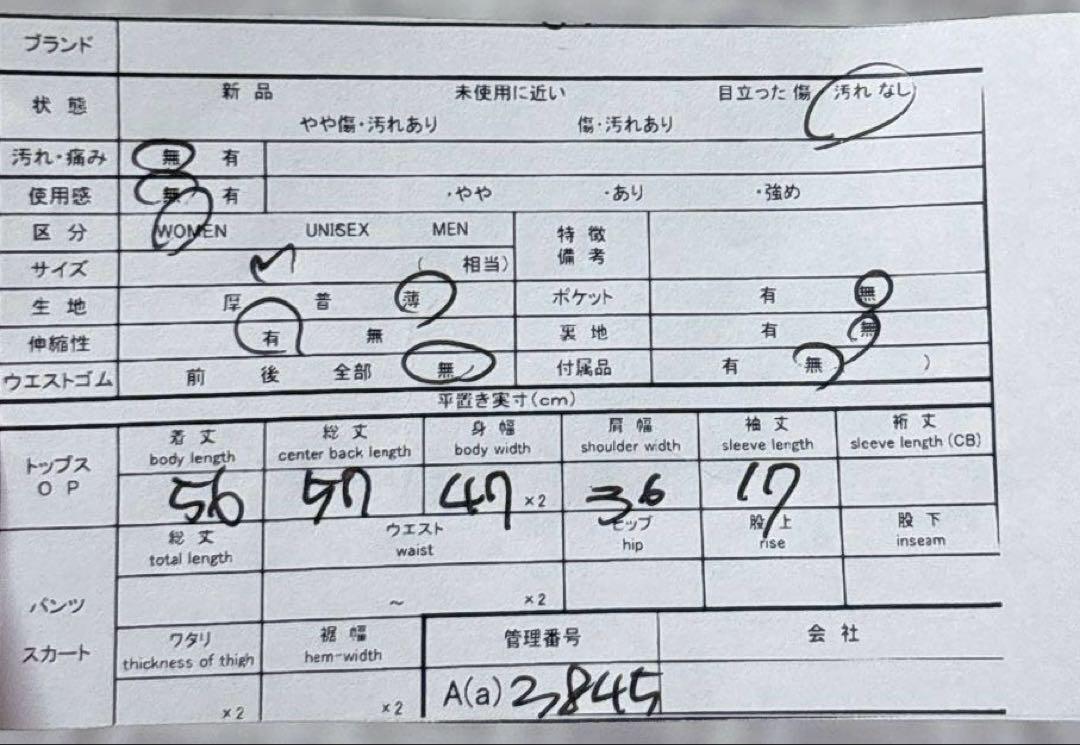 ブランド
状態 新品 未使用に近い 目立った傷 汚れなし
やや傷・汚れあり 傷・汚れあり
汚れ・痛み 無 有
使用感 無 有 ・やや ・あり ・強め
区分 WOMEN UNISEX MEN 特徴
備考
サイズ M ( 相当)
生地 厚 普 薄 ポケット 有 無
伸縮性 有 無 裏地 有 無
ウエストゴム 前 後 全部 無 付属品 有 無 )
平置き実寸(cm)
トップス
OP
着丈 総丈 身幅 肩幅 袖丈 裄丈
body length center back length body width shoulder width sleeve length sleeve length (CB)
56 57 47 ×2 36 17
総丈 ウエスト ヒップ 股上 股下
total length waist hip rise inseam
パンツ
スカート
～ ×2
ワタリ 裾幅 管理番号 会社
thickness of thigh hem-width
×2 ×2 A(a) 3845